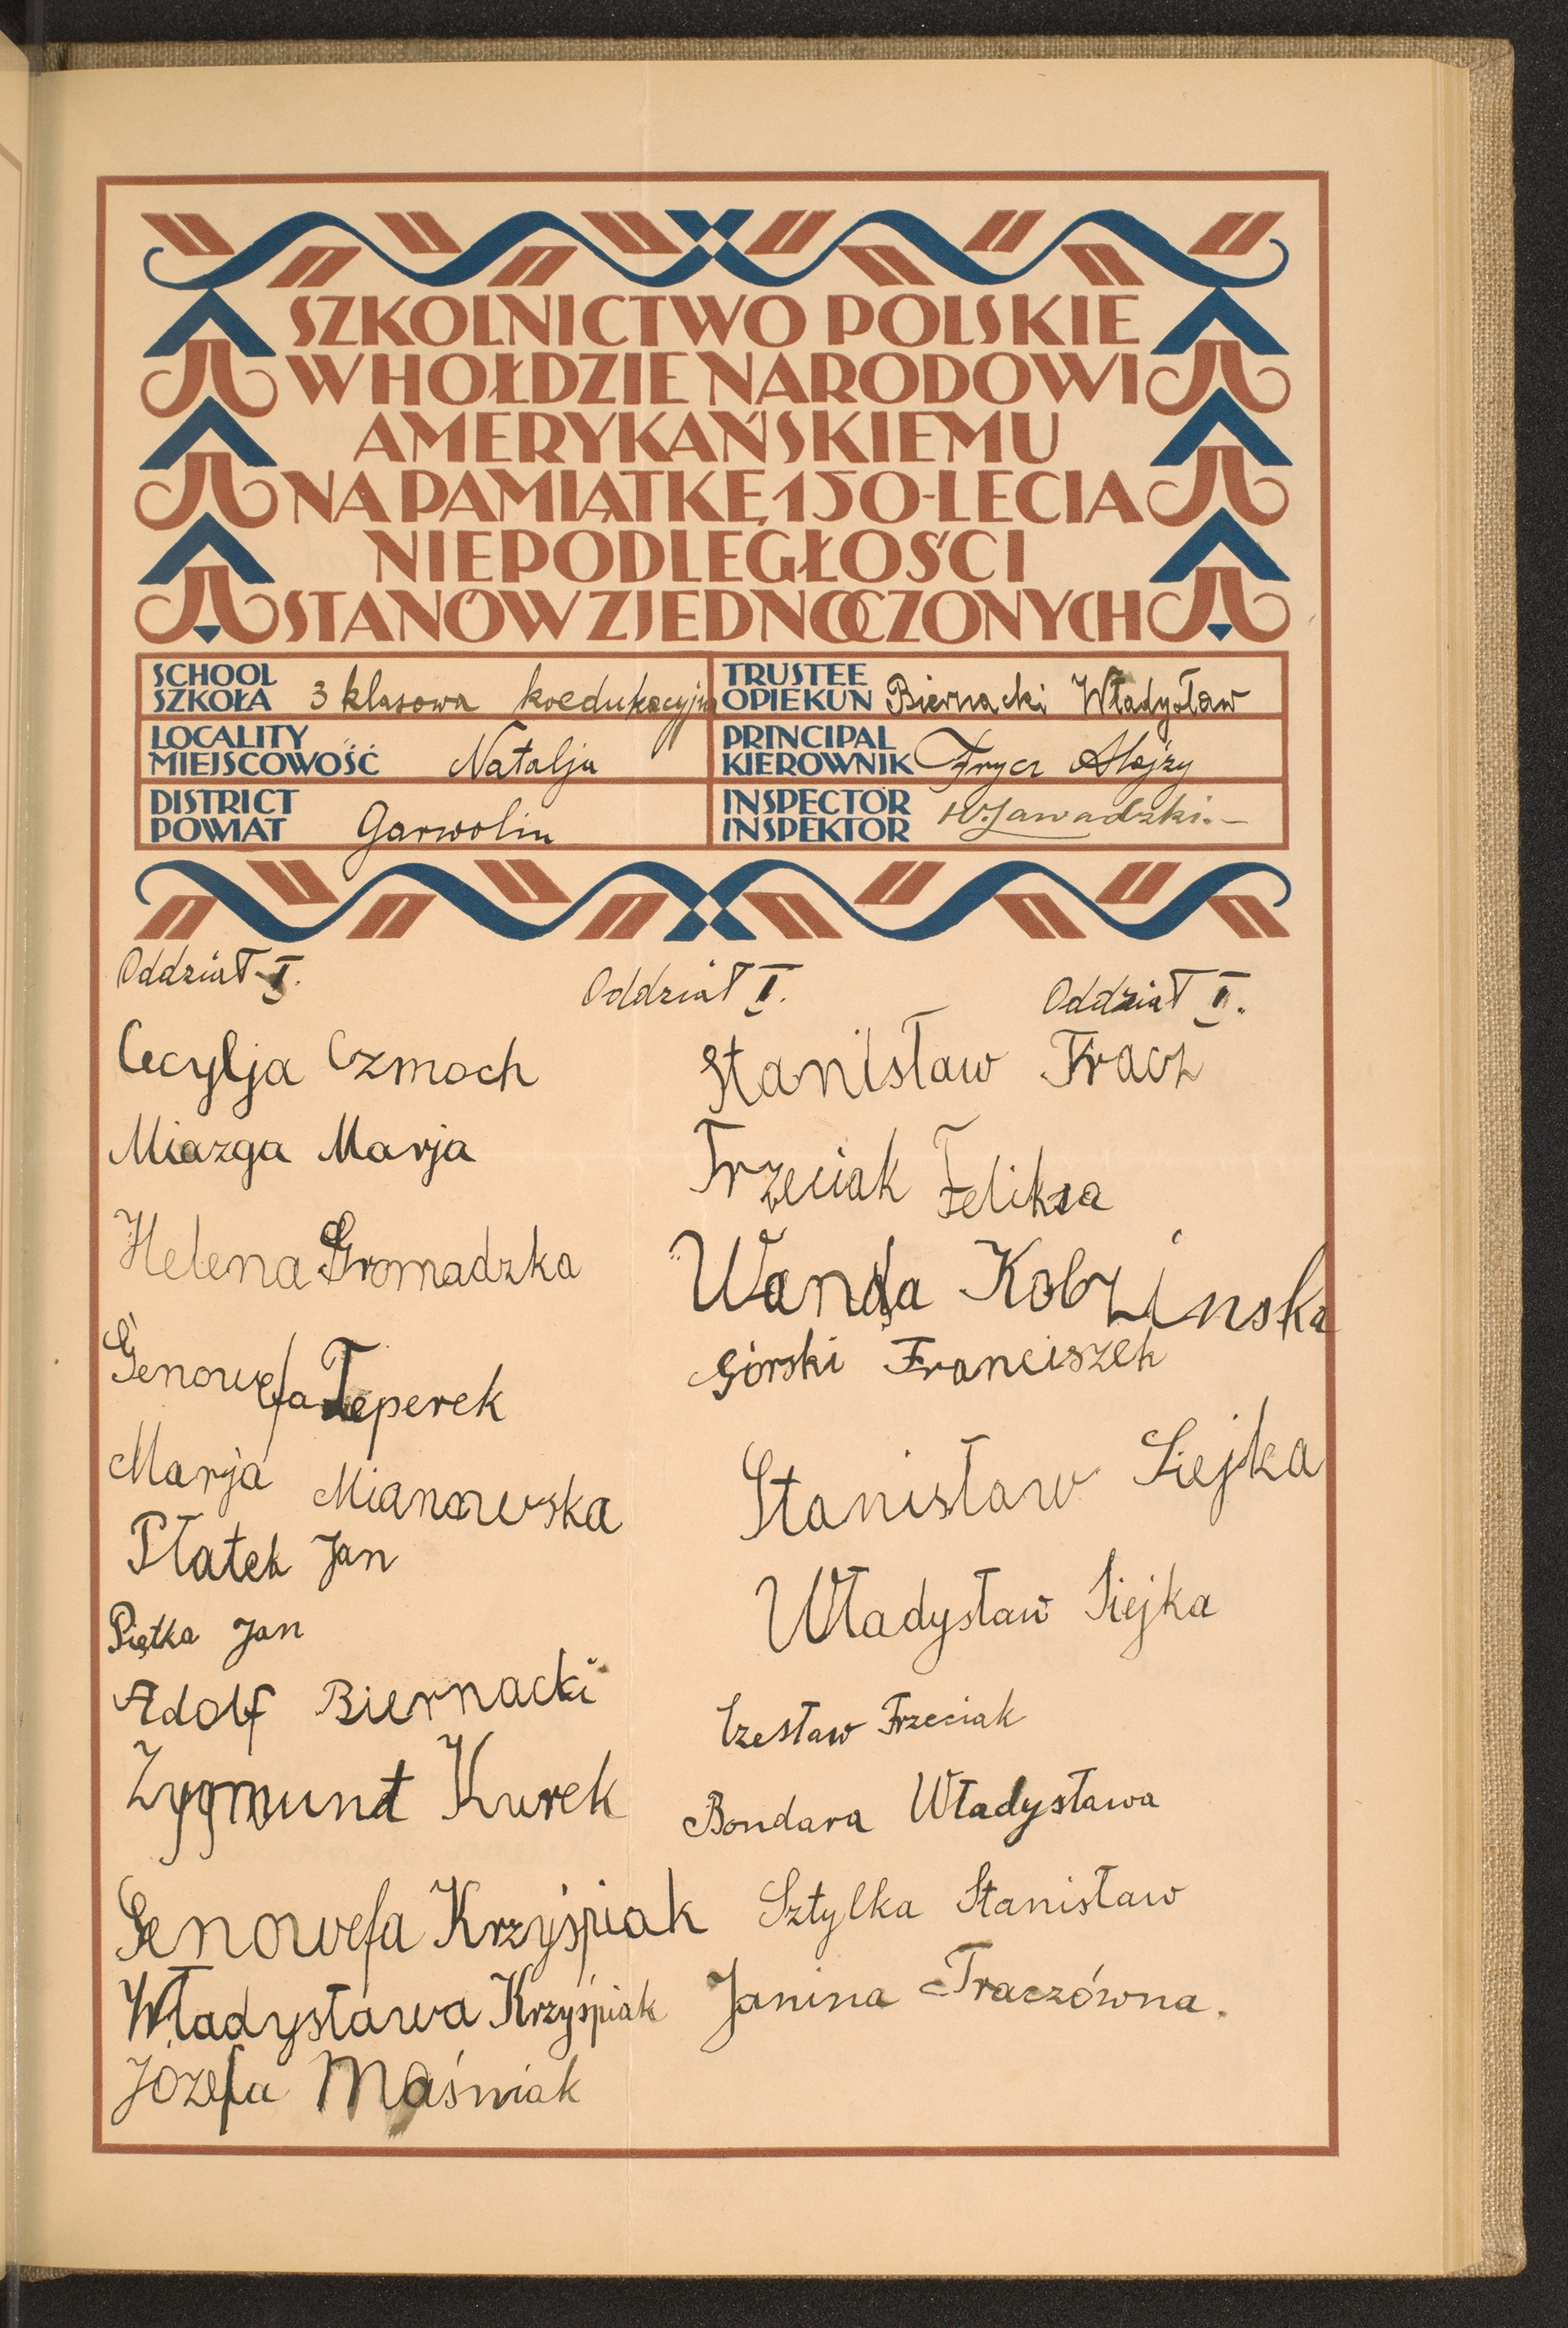 SZKOLNICTWO POLSKIE
W HOŁDZIE NARODOWI
AMERYKAŃSKIEMU
NA PAMIĄTKĘ 150-LECIA
NIEPODLEGŁOŚCI
STANÓW ZJEDNOCZONYCH
SCHOOL
SZKOŁA 3 klasowa koedukacyjna
TRUSTEE
OPIEKUN Biernacki Władysław
LOCALITY
MIEJSCOWOŚĆ Natalja
PRINCIPAL
KIEROWNIK Frycz Alojzy
DISTRICT
POWIAT Garwolin
INSPECTOR
INSPEKTOR W. Zawadzki.-
Oddział I.
Cecylja Czmoch
Miazga Marja
Helena Gromadzka
Genowefa Teperek
Marja Mianowska
Płatek Jan
Piętka Jan
Adolf Biernacki
Zygmunt Kurek
Genowefa Krzyśpiak
Władysława Krzyśpiak
Józefa Maśniak
Oddział I. Oddział I.
Stanisław Tracz
Trzeciak Feliksa
Wanda Kobzinska
Górski Franciszek
Stanisław Siejka
Władysław Siejka
Czesław Trzeciak
Bondara Władysława
Sztylka Stanisław
Janina Traczówna.